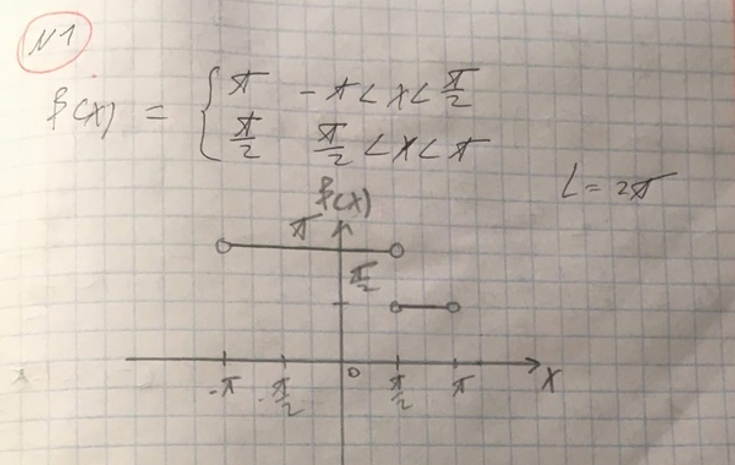 N1
f(x) = { π   -π < x < π/2
π/2   π/2 < x < π
L = 2π
f(x)
π
π/2
-π   -π/2   0   π/2   π   x